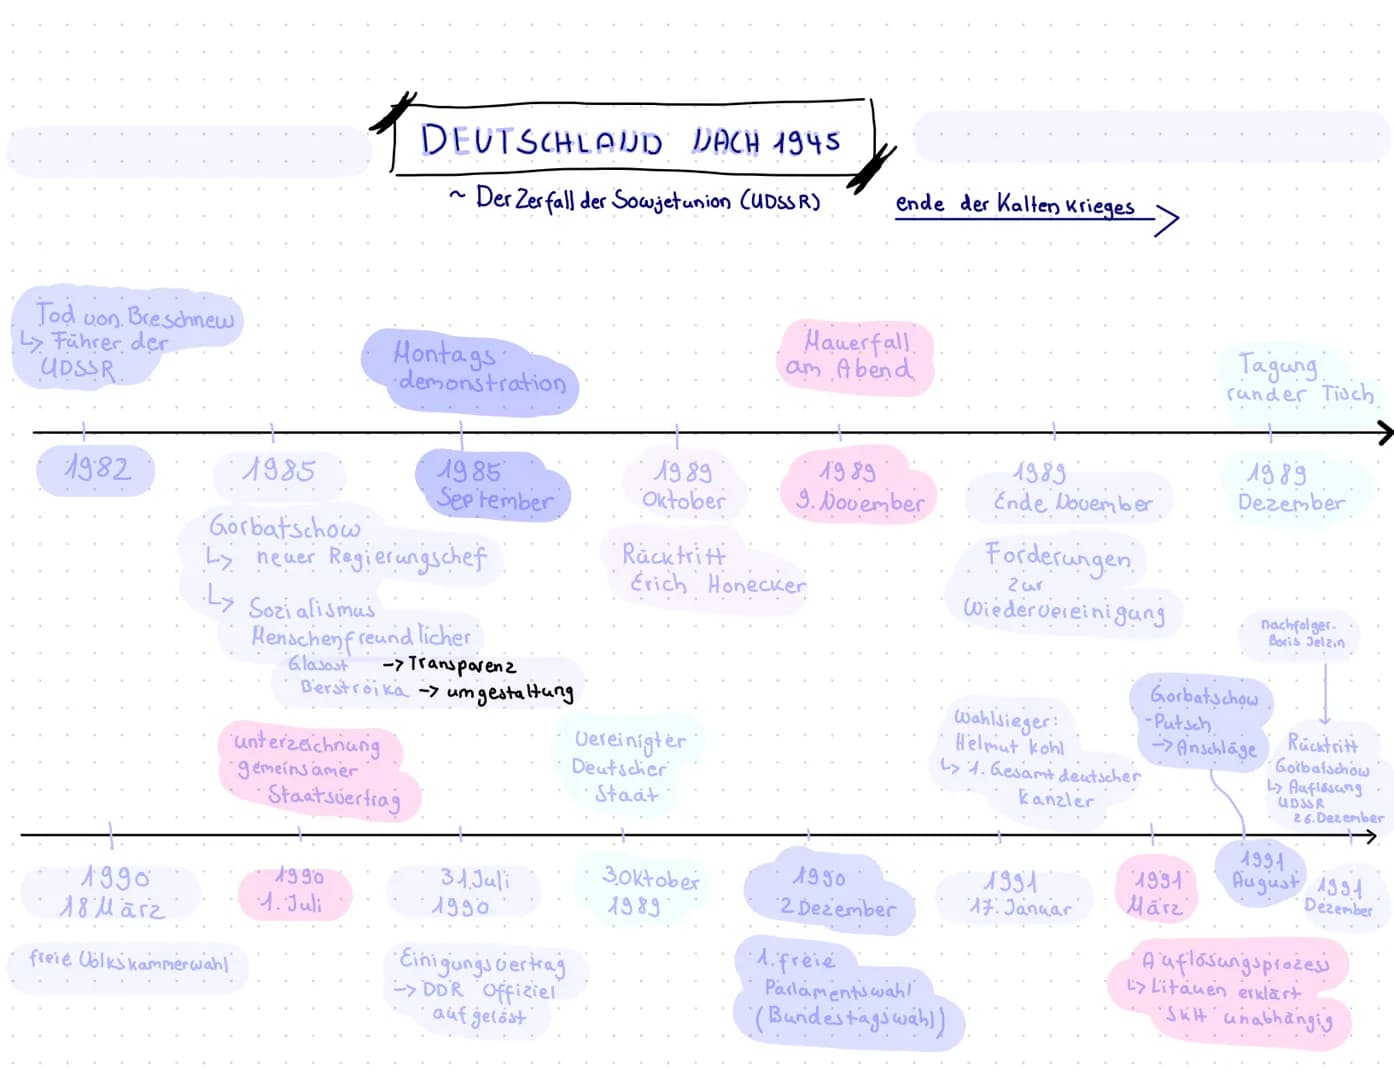 DEUTSCHLAND NACH 1945
~ Der Zerfall der Sowjetunion (UDSSR)
ende der Kalten Krieges
Tod von Breschnew
↳ Führer der
UDSSR
Montags
demonstration
Mauerfall
am Abend
Tagung
runder Tisch
1982
1985
1985
September
1989
Oktober
1989
9. November
1989
Ende November
1989
Dezember
Gorbatschow
↳ neuer Regierungschef
↳ Sozialismus
Menschenfreundlicher
Glasost → Transparenz
Berstroika → umgestaltung
Rücktritt
Erich Honecker
Forderungen
zur
Wiedervereinigung
nachfolger.
Boris Jelzin
unterzeichnung
gemeinsamer
Staatsvertrag
Vereinigter
Deutscher
Staat
Wahlsieger:
Helmut Kohl
↳ 1. Gesamtdeutscher
Kanzler
Gorbatschow
-Putsch
→ Anschläge
Rücktritt
Gorbatschow
↳ Auflösung
UDSSR
26. Dezember
1990
18 März
1990
1. Juli
31.Juli
1990
3.Oktober
1989
1990
2 Dezember
1991
17. Januar
1991
März
1991
August
1991
Dezember
freie Volkskammerwahl
Einigungsvertrag
→ DDR Offiziel
aufgelöst
1. freie
Parlamentswahl
(Bundestagswahl)
Auflösungsprozess
↳ Litauen erklärt
SKH unabhängig